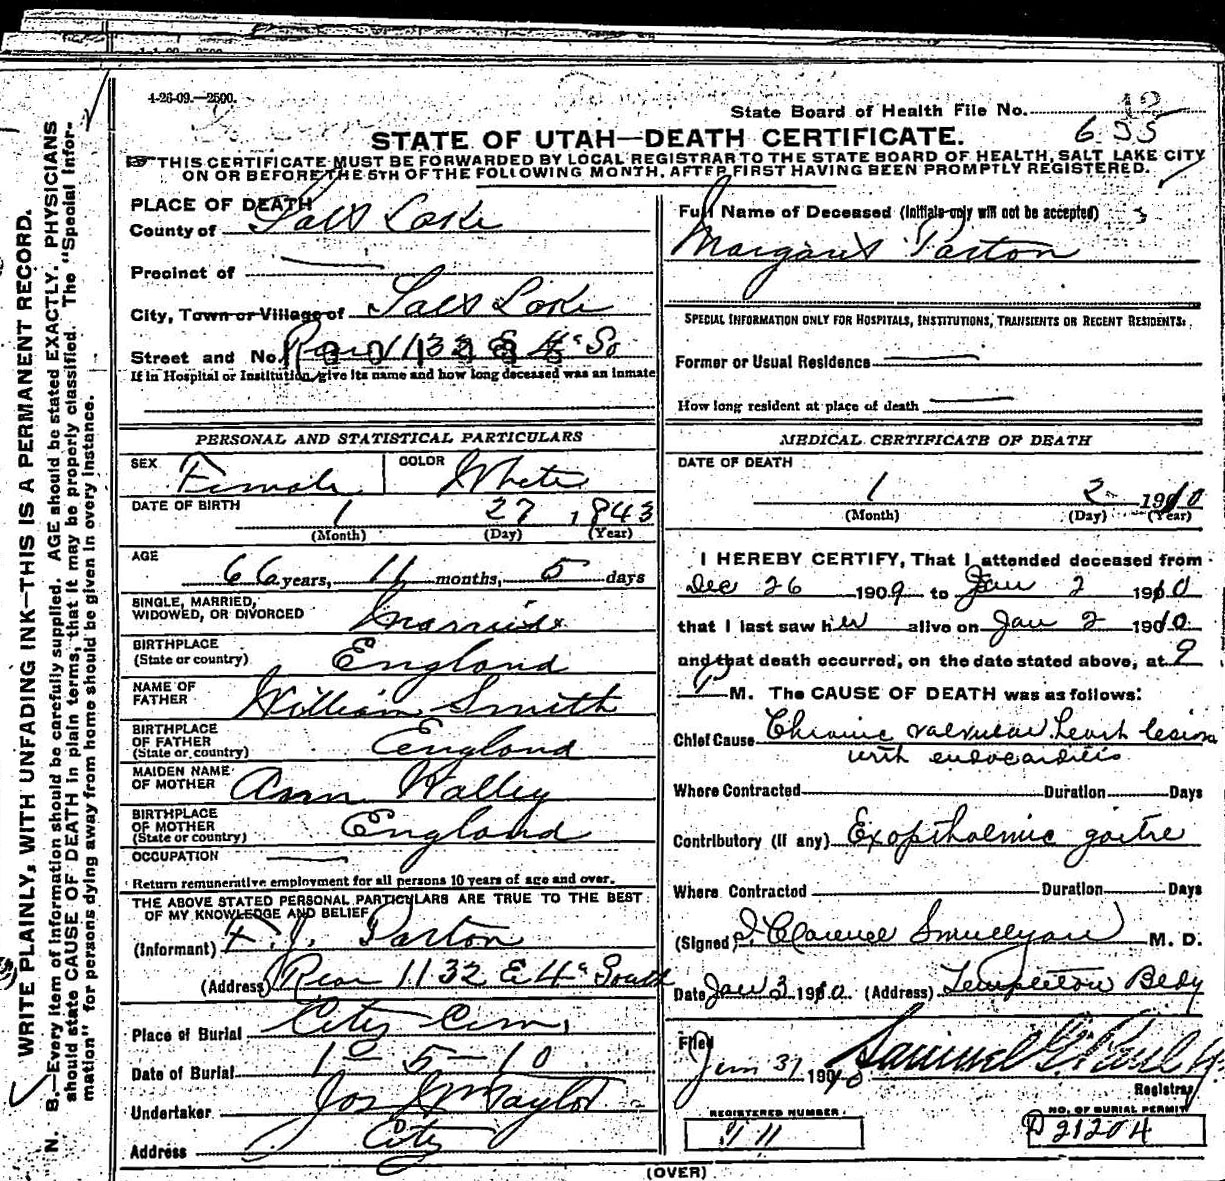 1-26-09.—2500.
State Board of Health File No. 12
635
STATE OF UTAH—DEATH CERTIFICATE.
THIS CERTIFICATE MUST BE FORWARDED BY LOCAL REGISTRAR TO THE STATE BOARD OF HEALTH, SALT LAKE CITY
ON OR BEFORE THE 5TH OF THE FOLLOWING MONTH, AFTER FIRST HAVING BEEN PROMPTLY REGISTERED.
WRITE PLAINLY, WITH UNFADING INK—THIS IS A PERMANENT RECORD.
N. B.—Every item of information should be carefully supplied. AGE should be stated EXACTLY. PHYSICIANS
should state CAUSE OF DEATH in plain terms, that it may be properly classified. The "Special Infor-
mation" for persons dying away from home should be given in every instance.
PLACE OF DEATH
County of Salt Lake
Precinct of
City, Town or Village of Salt Lake
Street and No. Rear 1132 E 4" So
If in Hospital or Institution, give its name and how long deceased was an inmate
PERSONAL AND STATISTICAL PARTICULARS
SEX Female COLOR White
DATE OF BIRTH 1 27 1843
(Month) (Day) (Year)
AGE 66 years, 11 months, 5 days
SINGLE, MARRIED,
WIDOWED, OR DIVORCED Married
BIRTHPLACE
(State or country) England
NAME OF
FATHER William Smith
BIRTHPLACE
OF FATHER
(State or country) England
MAIDEN NAME
OF MOTHER Ann Walley
BIRTHPLACE
OF MOTHER
(State or country) England
OCCUPATION
Return remunerative employment for all persons 10 years of age and over.
THE ABOVE STATED PERSONAL PARTICULARS ARE TRUE TO THE BEST
OF MY KNOWLEDGE AND BELIEF
(Informant) J. Parton
(Address) Rear 1132 E 4" South
Place of Burial City Cem.
Date of Burial 1-5-10
Undertaker Jos Wm Taylor
Address City
Full Name of Deceased (Initials only will not be accepted)
Margaret Parton
SPECIAL INFORMATION ONLY FOR HOSPITALS, INSTITUTIONS, TRANSIENTS OR RECENT RESIDENTS:
Former or Usual Residence
How long resident at place of death
MEDICAL CERTIFICATE OF DEATH
DATE OF DEATH
1 2 1910
(Month) (Day) (Year)
I HEREBY CERTIFY, That I attended deceased from
Dec 26 1909 to Jan 2 1910
that I last saw her alive on Jan 2 1910
and that death occurred, on the date stated above, at 9
P M. The CAUSE OF DEATH was as follows:
Chief Cause Chronic valvular heart lesion
with endocarditis
Where Contracted Duration Days
Contributory (if any) Exopthalmic goitre
Where Contracted Duration Days
(Signed) Clarence Smullyan M. D.
Date Jan 3 1910 (Address) Templeton Bldg
Filed
Jan 31 1910 Samuel G. Paul
Registrar
REGISTERED NUMBER
11
NO. OF BURIAL PERMIT
D 21204
(OVER)